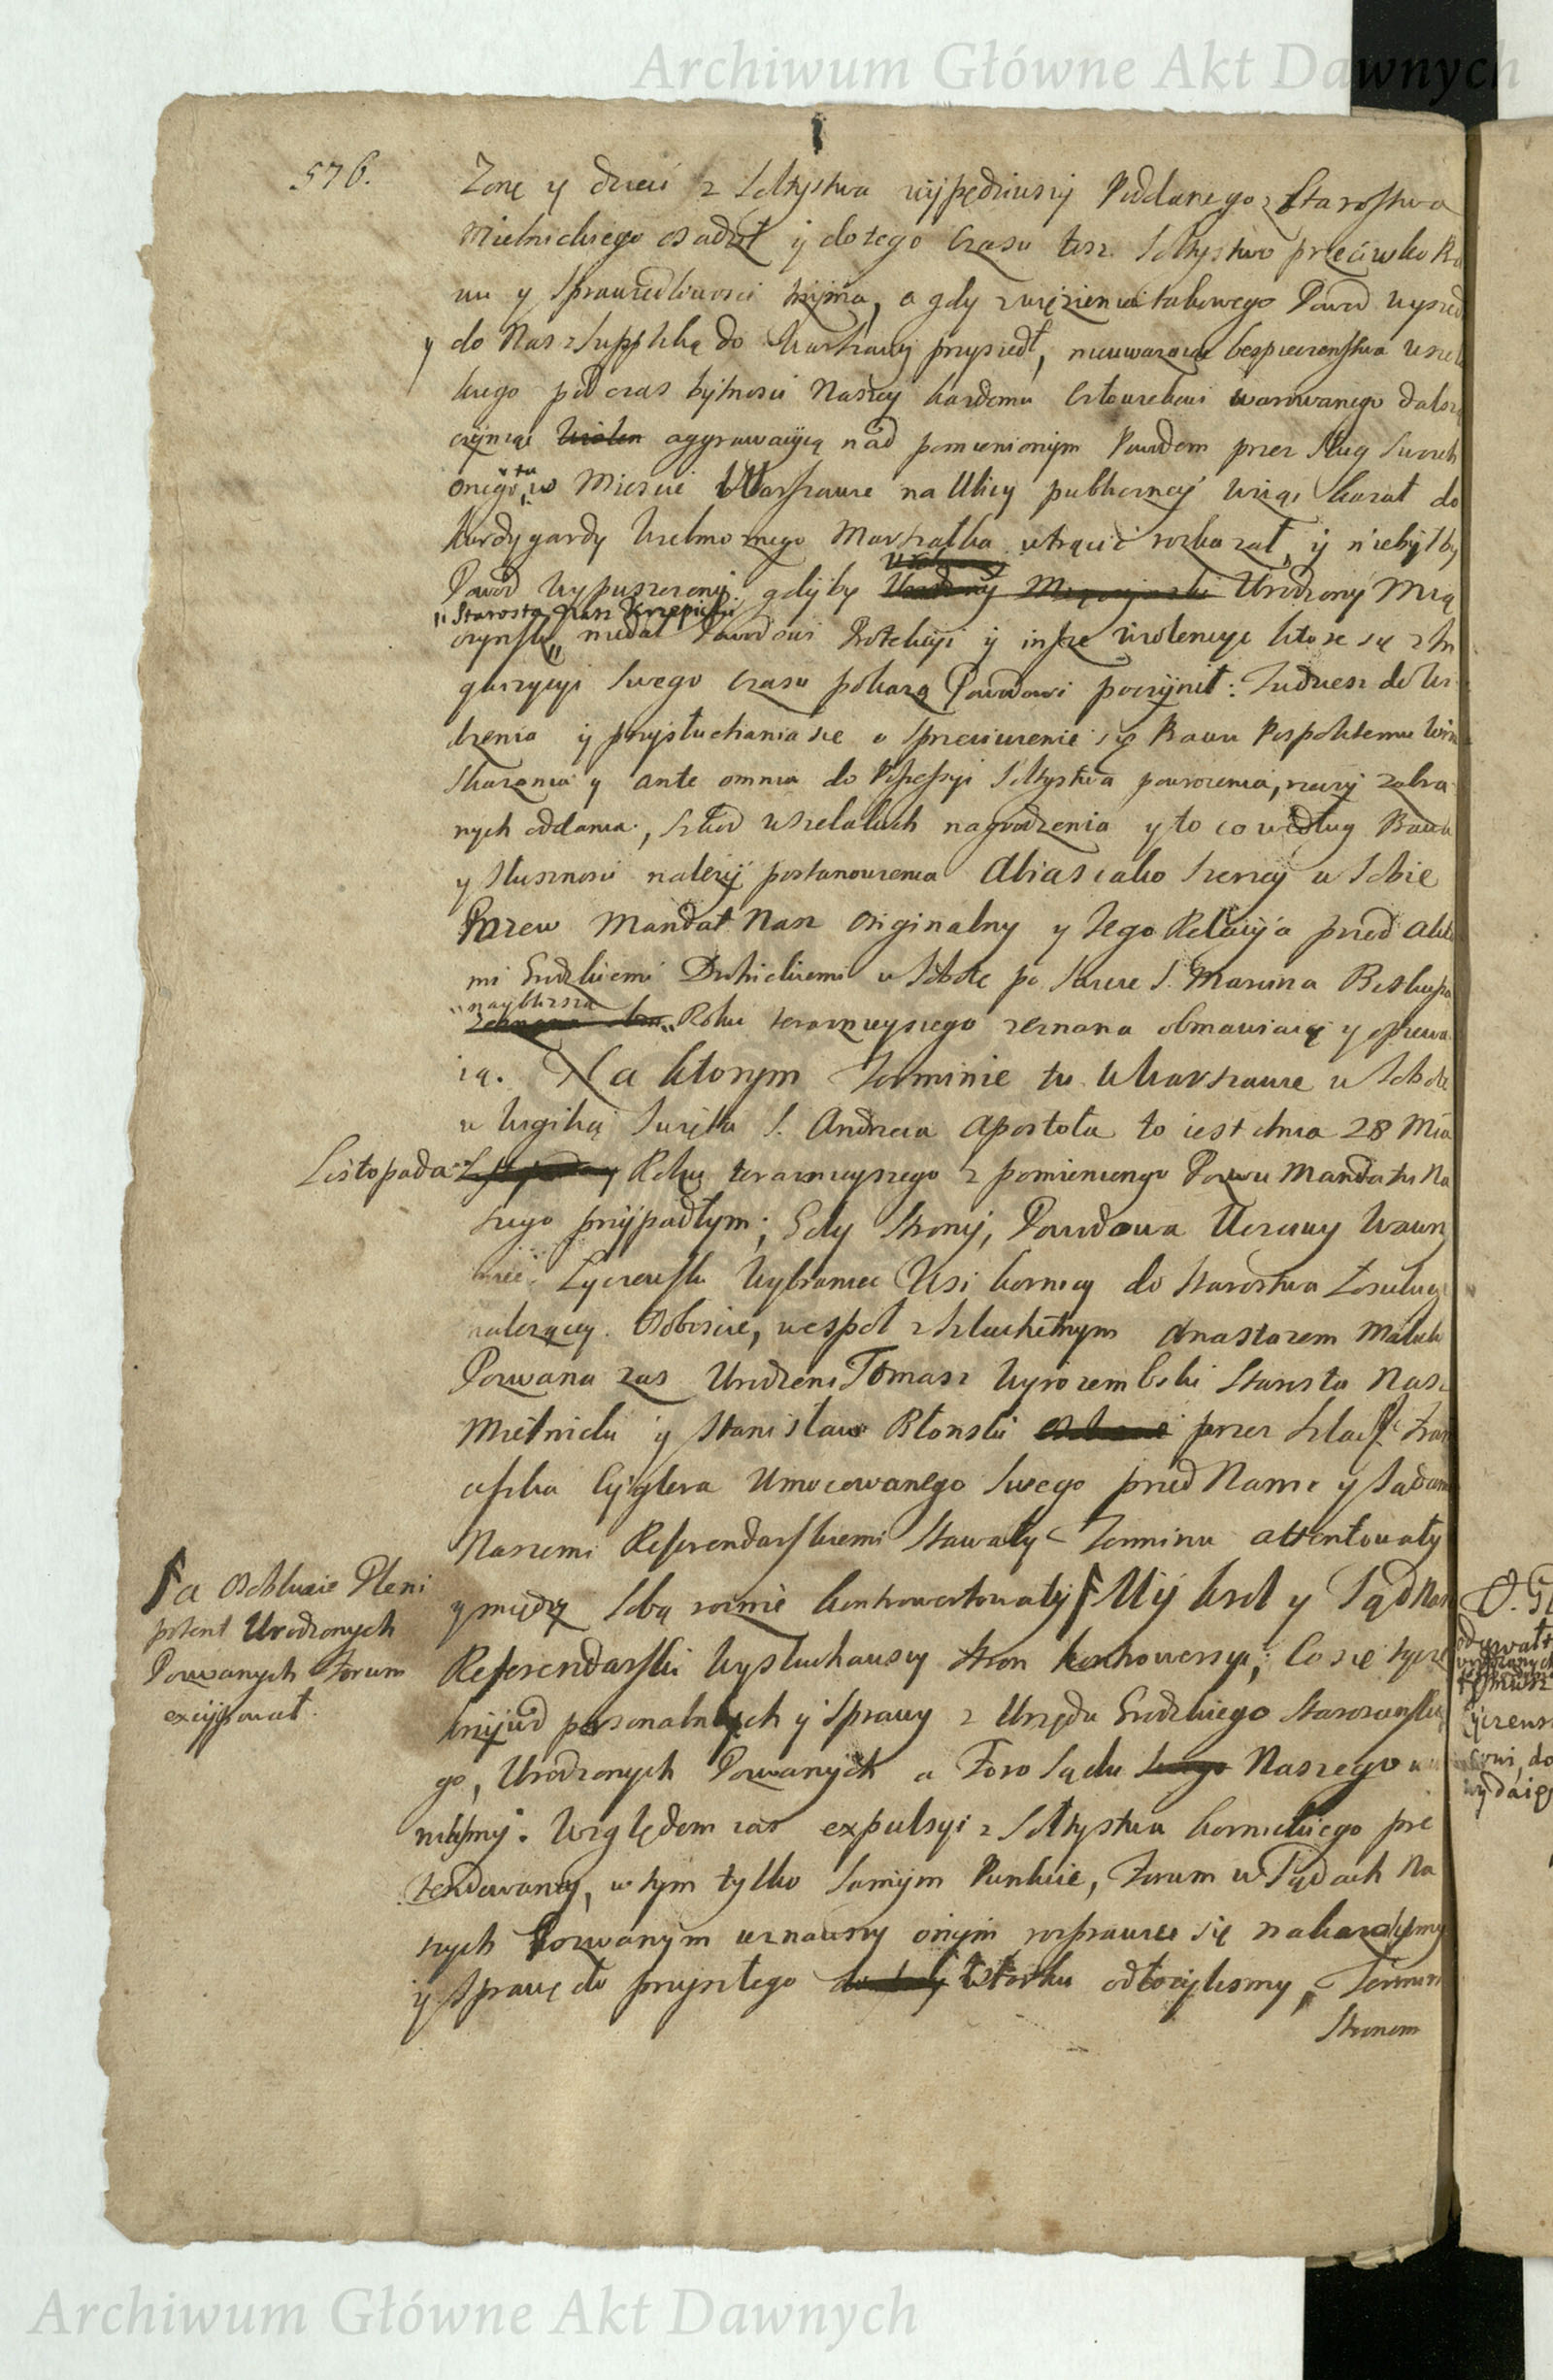 Archiwum Główne Akt Dawnych
576.
Zonę y dzieci z Sołtystwa wypędziwszy Poddanego z Starostwa
Mielnickiego osadził y do tego czasu tesz Sołtystwo przeciwko Pra
wu y Sprawiedliwosci trzyma, a gdy z więzienia takowego Powod wyszed
y do Nas z Suppliką do Warszawy przyszedł, nieuwazaiąc bespieczenstwa wszel
kiego pod czas bytnosci Naszey kazdemu Człowiekowi warowanego dalszą
czyniąc aggrawacyią nad pomienionym Powodem przez Sług Swoich
onego tu w Miescie Warszawie na Ulicy publiczney wziąć kazał do
Kordygardy Wielmoznego Marszałka wtrącić rozkazał, y niebyłby
Powod wypuszczony, gdyby Urodzony Mią
"Starosta Nasz Krzepicki
czynski" niedał Powodowi Protekcyi y insze violencye ktore się z In
quizycyi swego czasu pokazą Powodowi poczynił: Tudziesz do Wi
dzenia y przysłuchania się o Sprzeciwienie się Prawu Pospolitemu Win
Skazania y ante omnia do Possessyi Sołtystwa powrocenia, rzeczy zabra
nych oddania, szkod wszelakich nagrodzenia y to co według Prawa
y Słusznosci nalezy postanowienia Alias iako szerzey w Sobie
Pozew Mandat Nasz Originalny y Jego Relacyia przed Akta
mi Grodzkiemi Drohickiemi w Sobotę po Swięcie S. Marcina Biskupa
"nayblizszą
Roku teraznieyszego zeznana obmawiaią y opiewa
ią. Na ktorym Terminie tu w Warszawie w Sobotę
w Wigilią Swięta S. Andrzeia Apostoła to iest dnia 28 Mca
Listopada Roku teraznieyszego z pomienionego Pozwu Mandatu Na
szego przypadłym; Gdy Strony, Powodowa Uczciwy Wawrz
Łyczewski Wybraniec Wsi Kornicy do Starostwa Łosickieg
nalezącey. Osobiscie, wespoł z Szlachetnym Anastazem
Pozwana zas Urodzeni Tomasz Wyrozembski Starosta Nasz
Mielnicki y Stanisław Błonski przez Szlach. Fran
ciszka Cyglera Umocowanego swego przed Nami y Sądami
Naszemi Referendarskiemi Stawały Terminu attentowały
y między Sobą roznie kontrowertowały My Krol y Sąd Nasz
Referendarski Wysłuchawszy stron kontrowersyi; Co się tycze
krzywd personalnych y Sprawy z Urzędu Grodzkiego
go, Urodzonych Pozwanych a Foro Sądu Naszego
nilismy. Względem zas expulsyi z Sołtystwa Kornickiego pre
tendowaney, w tym tylko samym Punkcie, Forum w Sądach Na
szych Pozwanym uznawszy onym rosprawić się nakazalismy
y Sprawę do przyszłego Wtorku odłozylismy, Termin
Stronom
a Osobliwie Pleni
potent Urodzonych
Pozwanych Forum
excypował.
Archiwum Główne Akt Dawnych